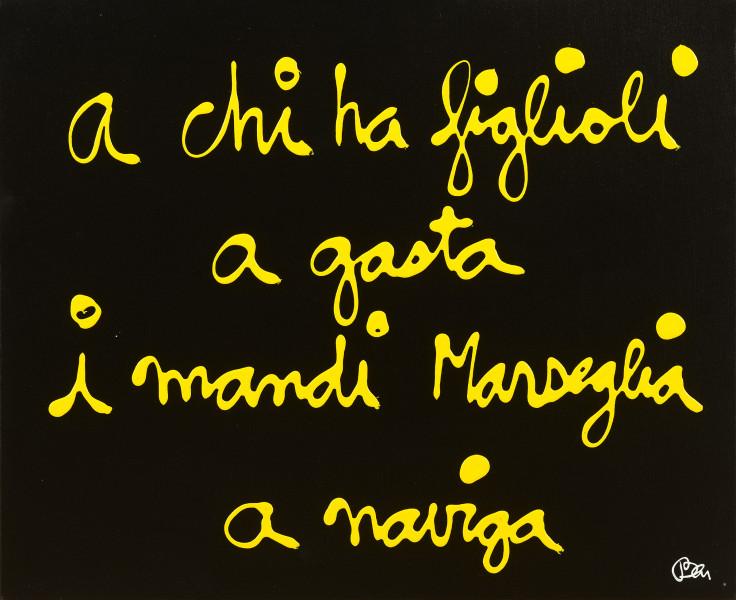 a chi ha figlioli
a gasta
i mandi Marseglia
a naviga
Ben